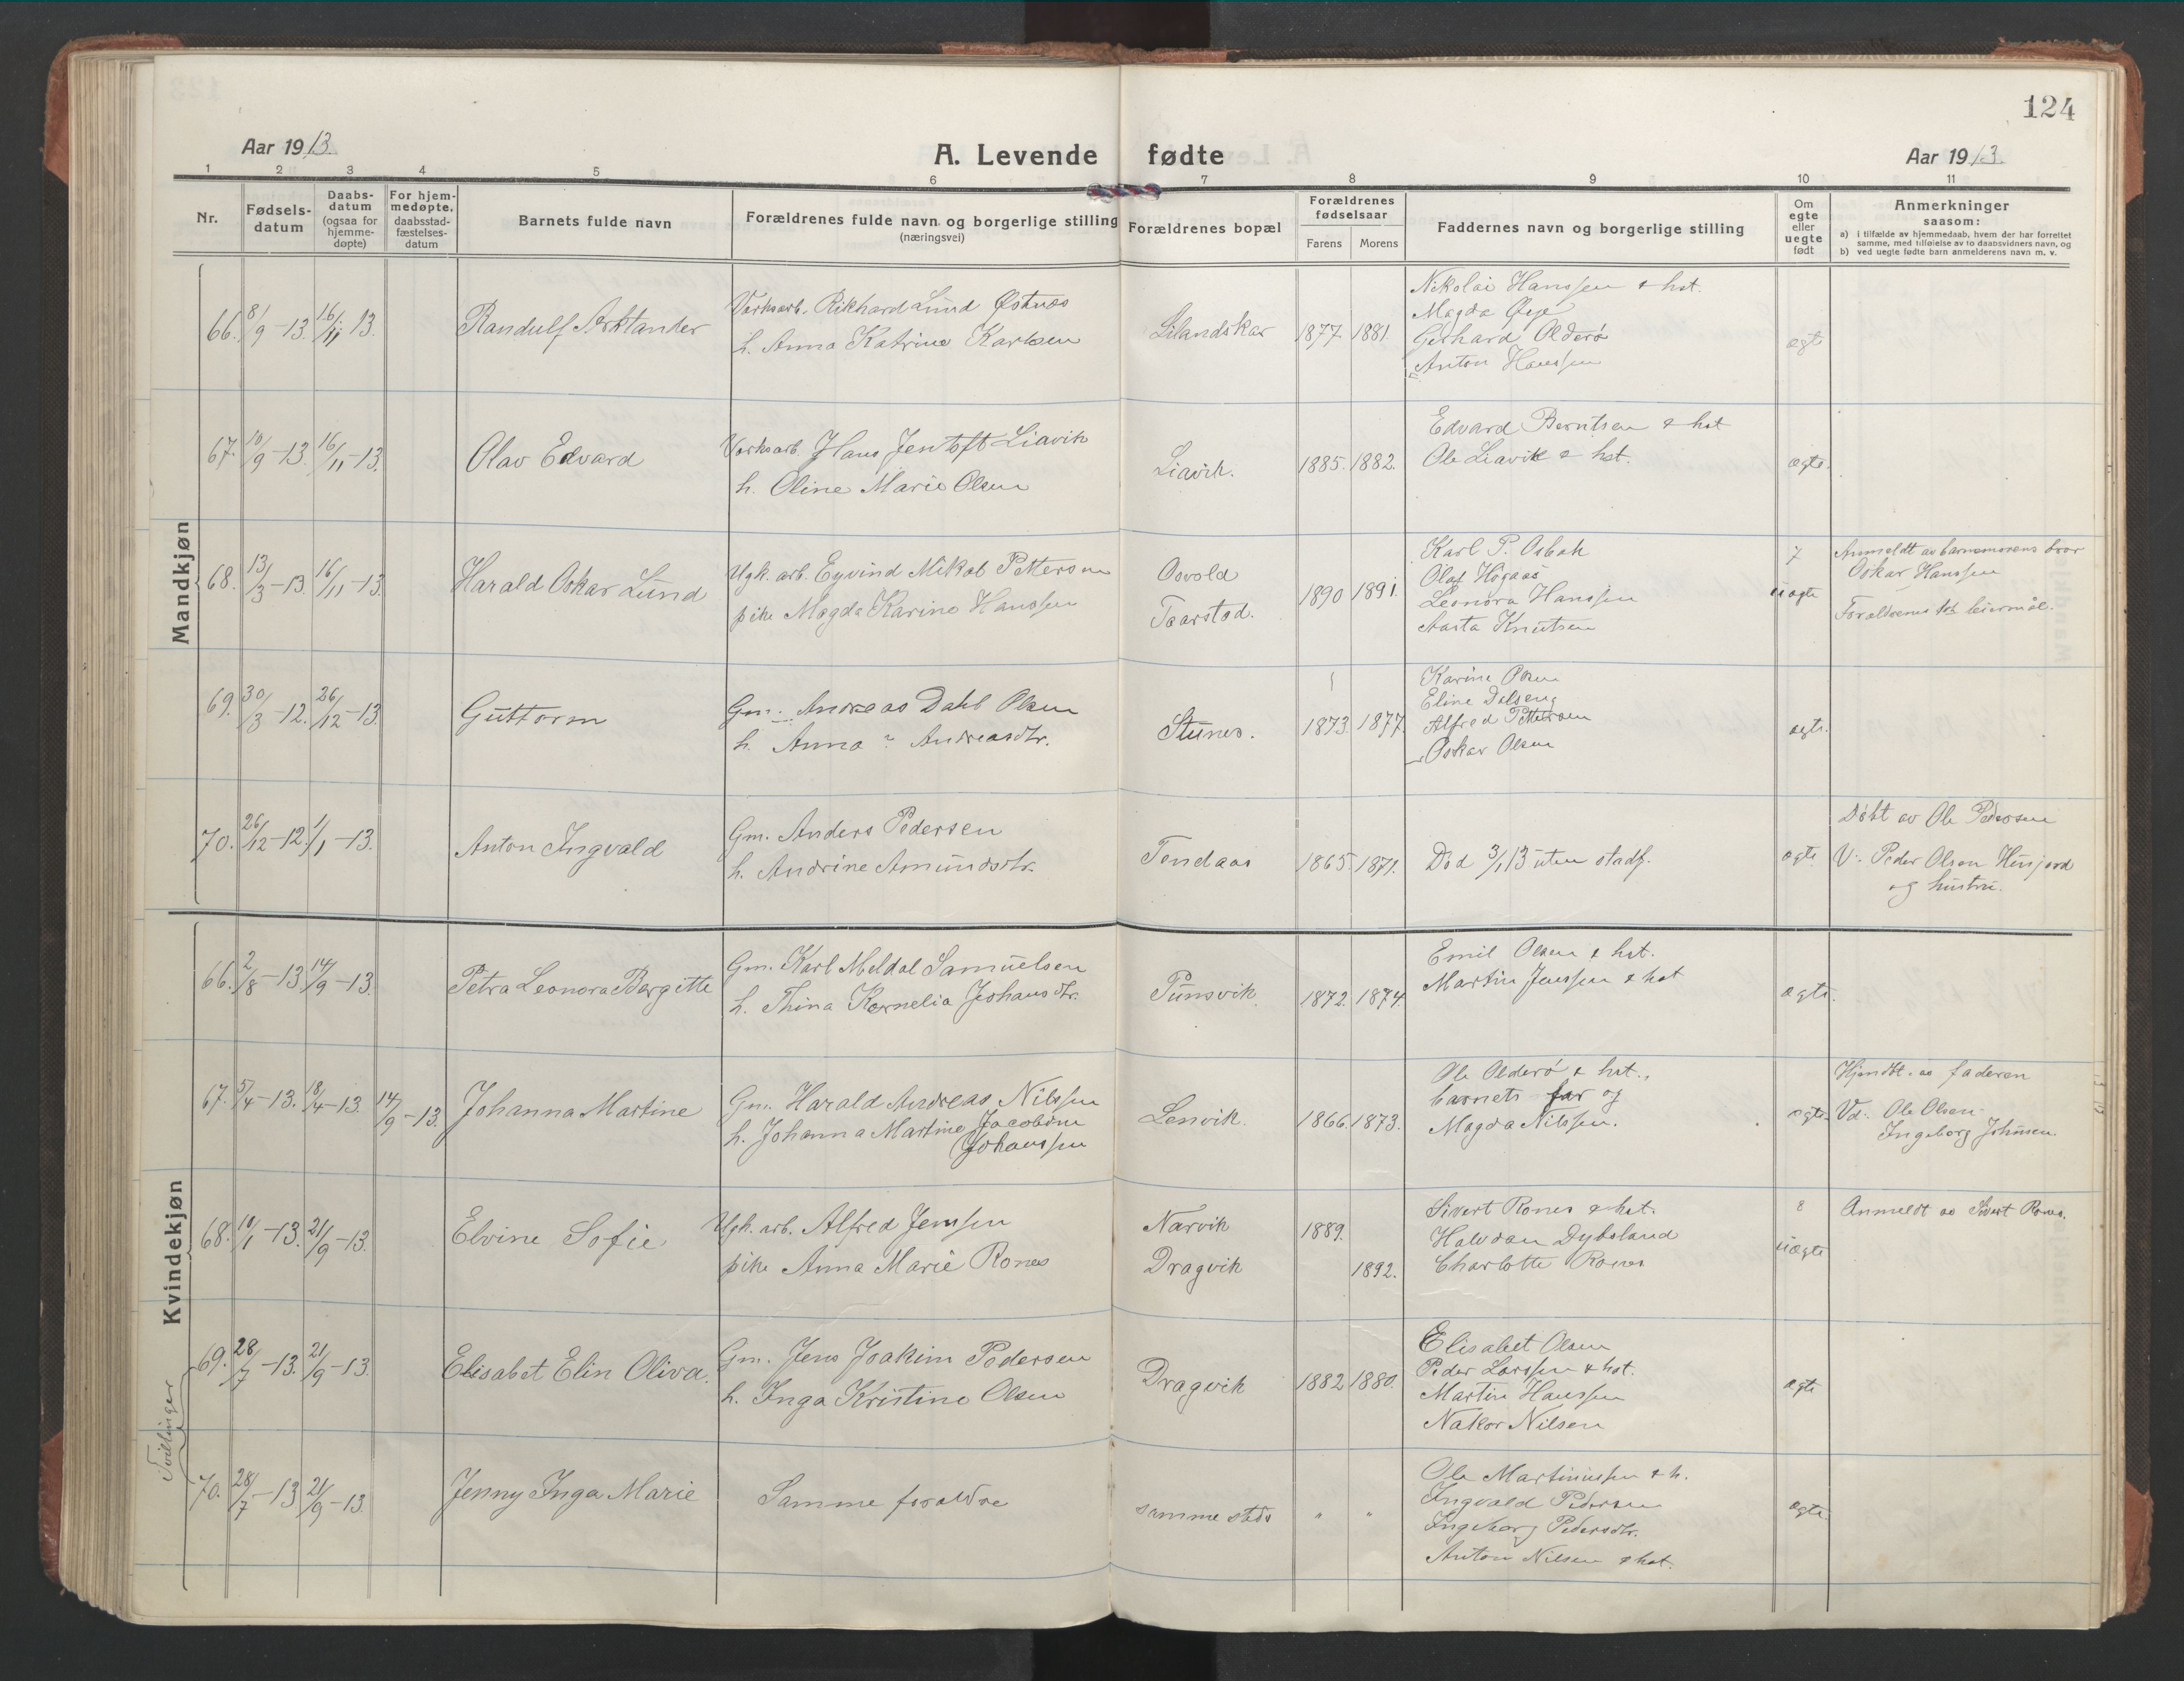 124
Aar 1913.
A. Levende fødte
Aar 1913.
1 2 3 4 5 6 7 8 9 10 11
Nr.
Fødsels-
datum
Daabs-
datum
(ogsaa for
hjemme-
døpte)
For hjem-
medøpte,
daabsstad-
fæstelses-
datum
Barnets fulde navn
Forældrenes fulde navn og borgerlige stilling
(næringsvei)
Forældrenes bopæl
Forældrenes
fødselsaar
Farens Morens
Faddernes navn og borgerlige stilling
Om
egte
eller
uegte
født
Anmerkninger
saasom:
a) i tilfælde av hjemmedaab, hvem der har forrettet
samme, med tilføielse av to daabsvidners navn, og
b) ved uegte fødte barn anmelderens navn m. v.
Mandkjøn
66. 8/9-13. 16/11 13.
Randulf Arktander
Verksarb. Rikhard Lund Østnes
h. Anna Katrine Karlsen
Lilandskar
1877 1881.
Nikolai Hanssen & hst.
Magda Øye
Gerhard Olderø
Anton Hanssen
egte
67. 10/9-13 16/11-13.
Olav Edvard
Verksarb. Hans Jentoft Liavik
h. Oline Marie Olsen
Liavik.
1885. 1882.
Edvard Berntsen & hst
Ole Liavik & hst.
egte.
68. 13/3-13. 16/11-13.
Harald Oskar Lund
Ugk. arb. Eyvind Mikal Pettersen
pike Magda Karine Hanssen
Osvold
Taarstad.
1890 1891.
Karl P. Osbak
Olaf Hogaas
Leonora Hanssen
Aasta Knutsen
7
uegte
Anmeldt av barnemorens bror
Oskar Hanssen
Forældrenes 1ste leiermål.
69. 30/3-12. 26/12-13.
Guttorm
Gm. Andreas Dahl Olsen
h. Anna ? Andreasdtr.
Stunes.
1873. 1877.
Karine Olsen
Eline Dalseng
Alfred Pettersen
Oskar Olsen
egte.
70. 26/12-12. 1/1-13.
Anton Ingvald
Gm. Anders Pedersen
h. Andrine Amundsdtr.
Tendaas
1865. 1871.
Død 3/1 13 uten stadf.
egte
Døbt av Ole Pedersen
V: Peder Olsen Husjord
og hustru.
Kvindekjøn
66. 2/8-13. 14/9-13.
Petra Leonora Bergitte
Gm. Karl Meldal Samuelsen
h. Thina Kornelia Johansdtr.
Punsvik.
1872. 1874.
Emil Olsen & hst.
Martin Jenssen & hst
egte.
67. 5/4-13. 18/4-13. 14/9-13.
Johanna Martine
Gm. Harald Andreas Nilssen
h. Johanna Martine Jacobine
Johanssen
Lenvik.
1866. 1873.
Ole Olderø & hst.,
barnets far og
Magda Nilssen.
egte.
Hjemdbt. av faderen
Vd: Ole Olsen
Ingeborg Johnsen.
68. 10/1-13. 21/9-13.
Elvine Sofie
Ugk. arb. Alfred Jenssen
pike Anna Marie Rones
Narvik
Dragvik
1889.
1892.
Sivert Rones & hst.
Halvdan Dybsland
Charlotte Rones
8
uegte
Anmeldt av Sivert Rones.
Tvillinger
69. 28/7-13. 21/9-13.
Elisabet Elin Oliva.
Gm. Jens Joakim Pedersen
h. Inga Kristine Olsen
Dragvik
1882 1880.
Elisabet Olsen
Peder Larssen & hst.
Martin Hanssen
Nakor Nilsen
egte
70. 28/7-13 21/9-13.
Jenny Inga Marie
Samme forældre
samme steds
" "
Ole Martinussen & h.
Ingvald Pedersen
Ingeborg Pedersdtr.
Anton Nilsen & hst.
egte.